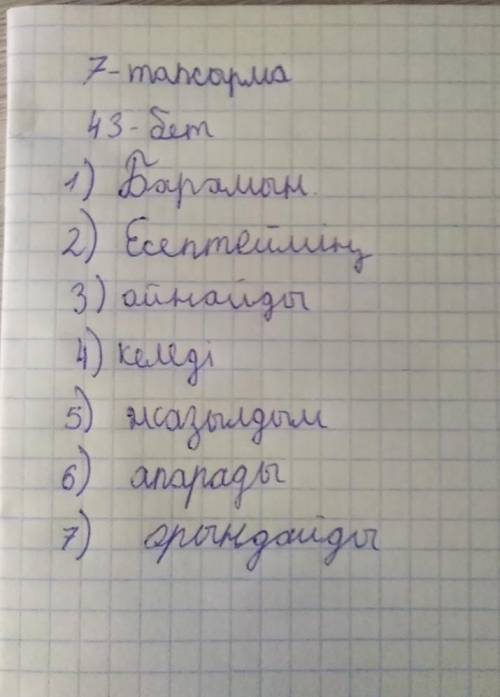 7-тапсарма
43-бет
1) Барамын.
2) Есептейміің
3) ойнайды
4) келеді
5) жазылдым
6) апарады
7) орындайды